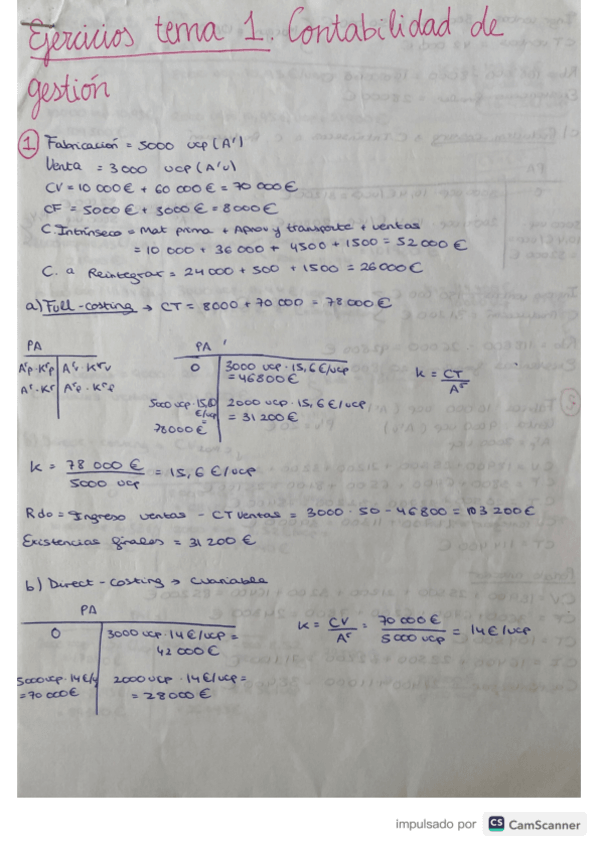 Ejercicios tema 1. Contabilidad de
gestión
1 Fabricación = 5000 ucp (A^r)
Venta = 3000 ucp (A^rv)
CV = 10 000 € + 60 000 € = 70 000 €
CF = 5000 € + 3000 € = 8000 €
C. Intrínseco = Mat prima + Aprov y transporte + ventas
= 10 000 + 36 000 + 4500 + 1500 = 52 000 €
C. a Reintegrar = 24 000 + 500 + 1500 = 26 000 €
a) Full-costing → CT = 8000 + 70 000 = 78 000 €
PA
A^rp · K^rp A^r · K^rv
A^r · K^r A^rp · K^rp
PA
0 3000 ucp · 15,6 €/ucp
= 46800 €
5000 ucp · 15,6 2000 ucp · 15,6 €/ucp
€/ucp = 31 200 €
=
78000 €
K = CT / A^r
K = 78 000 € / 5000 ucp = 15,6 €/ucp
Rdo = Ingreso ventas - CT ventas = 3000 · 50 - 46800 = 103 200 €
Existencias finales = 31 200 €
b) Direct-costing → Cvariable
PA
0 3000 ucp · 14 €/ucp =
42 000 €
5000 ucp · 14 €/u 2000 ucp · 14 €/ucp =
= 70 000 € = 28 000 €
K = CV / A^r = 70 000 € / 5000 ucp = 14 €/ucp
impulsado por CS CamScanner